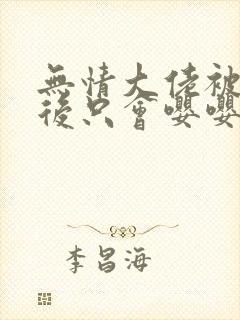 無情大佬被
後只會嚶嚶
李昌海